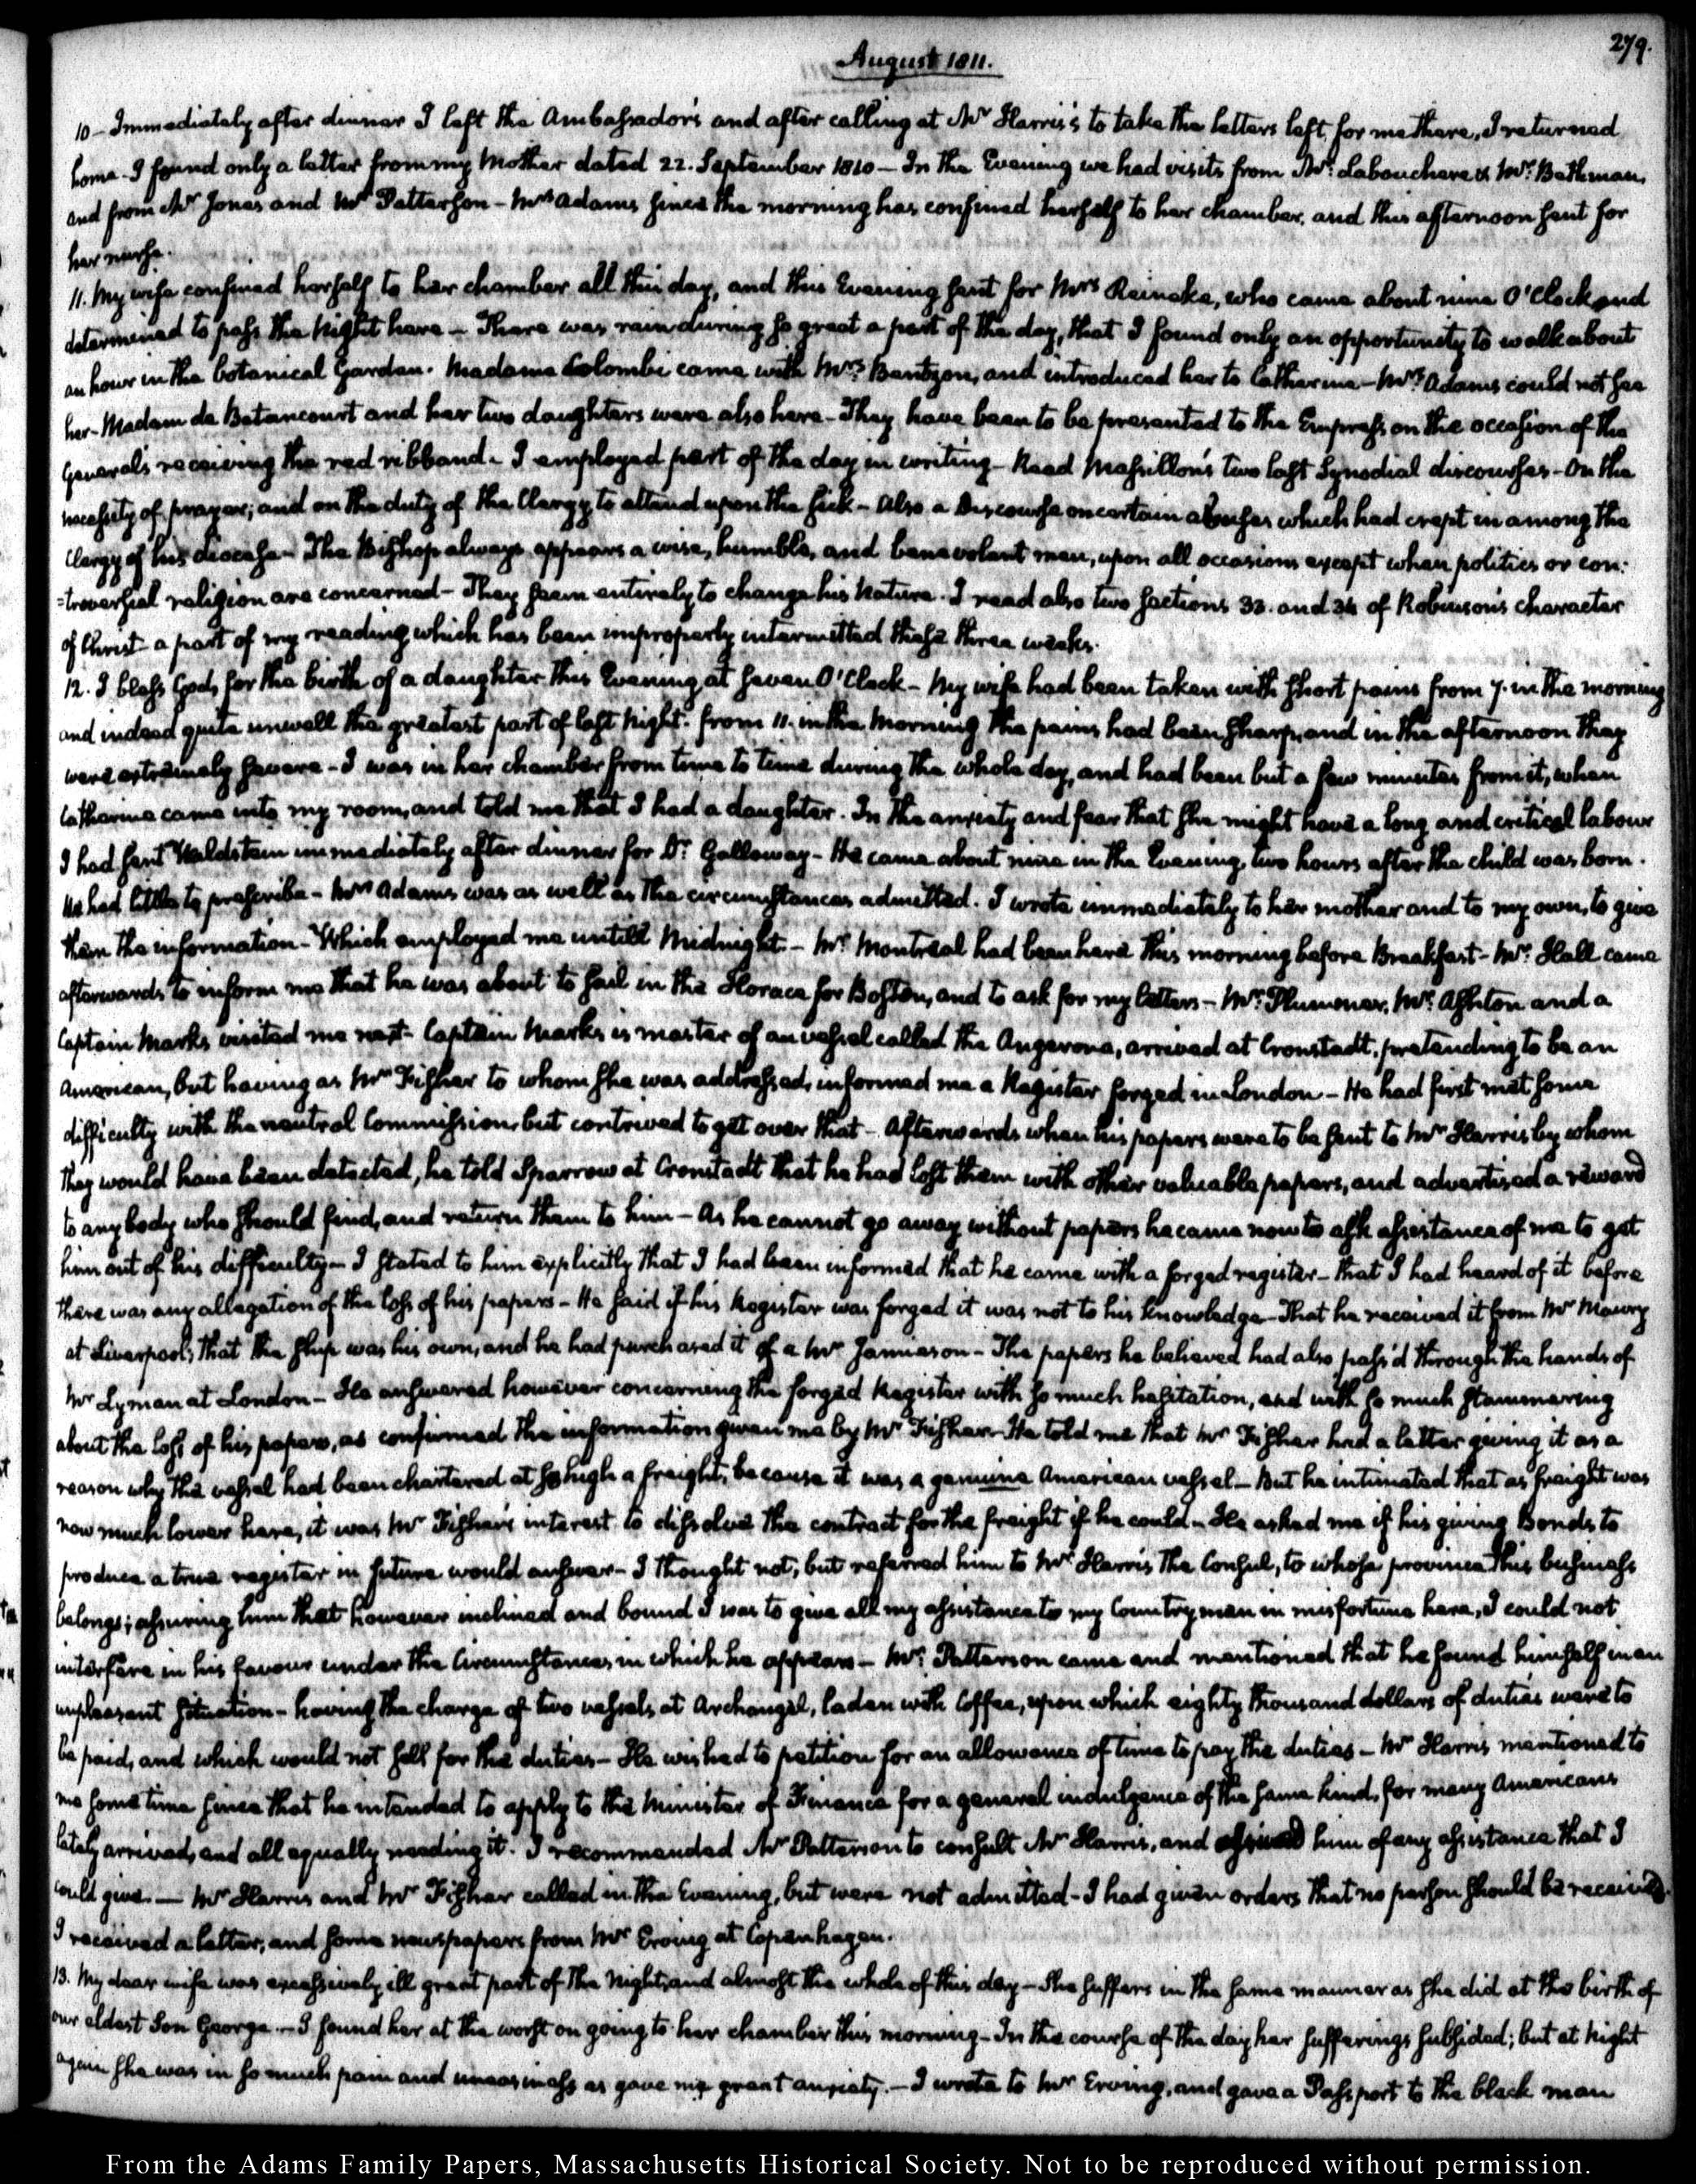 279.
August 1811.
10 - Immediately after dinner I left the Ambassador's and after calling at Mr Harris's to take the letters left for me there, I returned
home. I found only a letter from my Mother dated 22. September 1810 — In the Evening we had visits from Mr. Labouchere & Mr. Bethman,
and from Mr Jones and Mr Patterson - Mrs Adams since the morning has confined herself to her chamber, and this afternoon sent for
her nurse.
11. My wife confined herself to her chamber all this day, and this Evening sent for Mrs Reineke, who came about nine O'Clock and
determined to pass the Night here — There was rain during so great a part of the day, that I found only an opportunity to walk about
an hour in the botanical Garden. Madame Colombi came with Mrs Bentzon, and introduced her to Catherine — Mrs Adams could not see
her - Madam de Betancourt and her two daughters were also here - They have been to be presented to the Empress on the occasion of the
General's receiving the red ribband. I employed part of the day in writing - Read Massillon's two last Synodial discourses - On the
necessity of prayer; and on the duty of the Clergy to attend upon the sick - Also a Discourse on certain abuses which had crept in among the
Clergy of his diocese - The Bishop always appears a wise, humble, and benevolent man, upon all occasions except when politics or con:
=troversial religion are concerned - They seem entirely to change his Nature. I read also two sections 33. and 34 of Robinson's character
of Christ a part of my reading which has been improperly intermitted these three weeks.
12. I bless God, for the birth of a daughter this Evening at seven O'Clock - My wife had been taken with short pains from 7. in the morning
and indeed quite unwell the greatest part of last Night. from 11. in the Morning the pains had been sharp, and in the afternoon they
were extremely severe - I was in her chamber from time to time during the whole day, and had been but a few minutes from it, when
Catherine came into my room, and told me that I had a daughter. In the anxiety and fear that she might have a long and critical labour
I had sent Waldstein immediately after dinner for Dr. Galloway - He came about nine in the Evening, two hours after the child was born.
He had little to prescribe - Mrs Adams was as well as the circumstances admitted. I wrote immediately to her mother and to my own, to give
them the information - Which employed me untill Midnight. - Mr. Montreal had been here this morning before Breakfast - Mr. Hall came
afterwards to inform me that he was about to sail in the Horace for Boston, and to ask for my letters - Mr. Plummer, Mr. Ashton and a
Captain Marks visited me next. Captain Marks is master of an vessel called the Angerona, arrived at Cronstadt, pretending to be an
American, but having as Mr Fisher to whom she was addressed, informed me a Register forged in London - He had first met some
difficulty with the neutral Commission, but contrived to get over that - Afterwards when his papers were to be sent to Mr Harris by whom
they would have been detected, he told Sparrow at Cronstadt that he had lost them with other valuable papers, and advertised a reward
to any body who should find, and return them to him - As he cannot go away without papers he came now to ask assistance of me to get
him out of his difficulty - I stated to him explicitly that I had been informed that he came with a forged register - that I had heard of it before
there was any allegation of the loss of his papers - He said if his Register was forged it was not to his knowledge - That he received it from Mr Maury
at Liverpool; that the ship was his own, and he had purchased it of a Mr Jamieson - The papers he believed had also pass'd through the hands of
Mr Lyman at London - He answered however concerning the forged Register with so much hesitation, and with so much stammering
about the loss of his papers, as confirmed the information given me by Mr Fisher - He told me that Mr Fisher had a letter giving it as a
reason why the vessel had been chartered at so high a freight, because it was a genuine American vessel - But he intimated that as freight was
now much lower here, it was Mr Fisher's interest to dissolve the contract for the freight if he could - He asked me if his giving Bonds to
produce a true register in future would answer - I thought not; but referred him to Mr Harris the Consul, to whose province this business
belongs; assuring him that however inclined and bound I was to give all my assistance to my Countrymen in misfortune here, I could not
interfere in his favour under the Circumstances in which he appears - Mr. Patterson came and mentioned that he found himself in an
unpleasant situation - having the charge of two vessels at Archangel, laden with Coffee, upon which eighty thousand dollars of duties were to
be paid, and which would not sell for the duties - He wished to petition for an allowance of time to pay the duties - Mr Harris mentioned to
me some time since that he intended to apply to the Minister of Finance for a general indulgence of the same kind, for many Americans
lately arrived, and all equally needing it. I recommended Mr Patterson to consult Mr Harris, and assured him of any assistance that I
could give. — Mr Harris and Mr Fisher called in the Evening, but were not admitted - I had given orders that no person should be received.
I received a letter, and some newspapers from Mr Erving at Copenhagen.
13. My dear wife was excessively ill great part of the Night, and almost the whole of this day - She suffers in the same manner as she did at the birth of
our eldest Son George. - I found her at the worst on going to her chamber this morning - In the course of the day her sufferings subsided; but at Night
again she was in so much pain and uneasiness as gave me great anxiety. - I wrote to Mr Erving, and gave a Passport to the black man
From the Adams Family Papers, Massachusetts Historical Society. Not to be reproduced without permission.